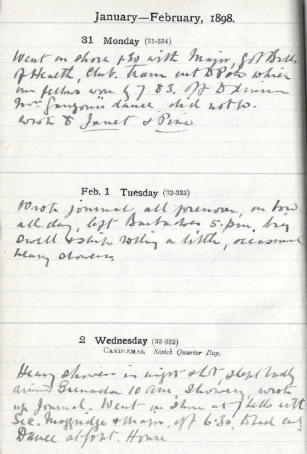 January—February, 1898.
31 Monday (31-334)
Went on shore 1.30 with Major, got Bills
of Health, Club. tram out to Polo which
our fellows won by 7 to 3. off to dinner
Mrs dance did not go.
wrote to Janet &
Feb. 1 Tuesday (32-333)
Wrote journal all forenoon, on board
all day, left Barbados 5 p.m. big
swell & ship rolling a little, occasional
heavy showers.
2 Wednesday (33-332)
CANDLEMAS. Scotch Quarter Day.
Heavy showers in night & hot, slept badly
arrived Grenada 10 am. Showery, wrote
up Journal. Went on shore at with
& Major, off 6.30,
Dance at Govt. House